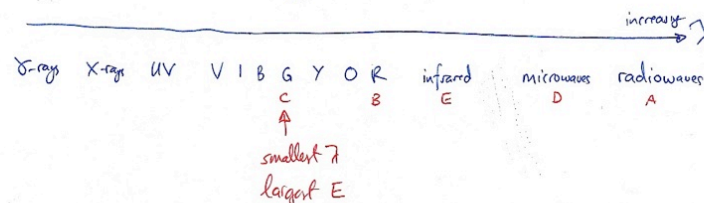 increasing λ
γ-rays X-rays UV V I B G Y O R infrared microwaves radiowaves
C B E D A
smallest λ
largest E